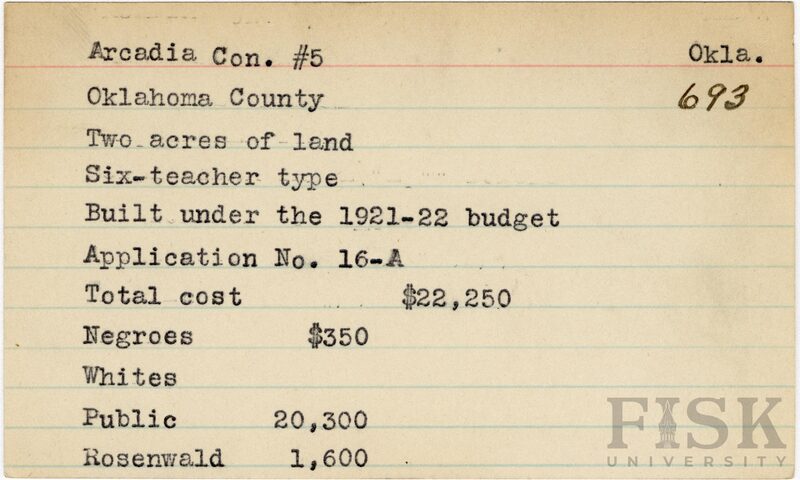 Arcadia Con. #5 Okla.
Oklahoma County 693
Two acres of land
Six-teacher type
Built under the 1921-22 budget
Application No. 16-A
Total cost $22,250
Negroes $350
Whites
Public 20,300
Rosenwald 1,600
FISK
UNIVERSITY